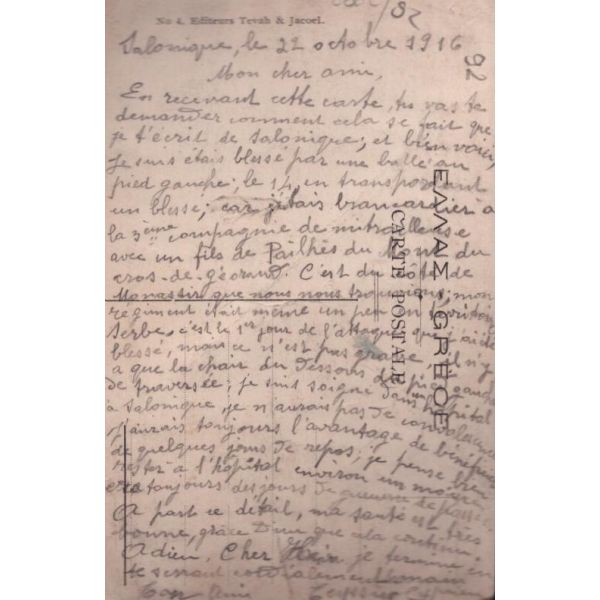 No 4. Editeurs Tevah & Jacoel.
92
Salonique, le 22 octobre 1916
Mon cher ami,
En recevant cette carte, tu vas te
demander comment cela se fait que
je t'écrit de Salonique; et bien voici,
Je suis étais blessé par une balle au
pied gauche; le 14, en transportant
un blessé; car j'étais brancardier à
la 3ème compagnie de mitrailleuse
avec un fils de Pailhès du Mont du
cros-de-géorand. C'est du côté de
Monastir que nous nous trouvions; mon
régiment était même un peu en territoire
Serbe, c'est le 1er jour de l'attaque que j'ai été
blessé, mais ce n'est pas grave, il n'y
a que la chair du dessous du pied gauche
de traversée; je suis soigné dans un hôpital
à Salonique, je n'aurais pas de convalescence
j'aurais toujours l'avantage de bénéficier
de quelques jours de repos; je pense bien
rester à l'hôpital environ un mois
toujours des jours de guerre de passé.
A part ce détail, ma santé est très
bonne, grâce Dieu que cela continue.
Adieu, Cher je termine en
te serrant cordialement la main
Ton Ami
ΕΛΛΑΣ - GRÈCE
CARTE POSTALE